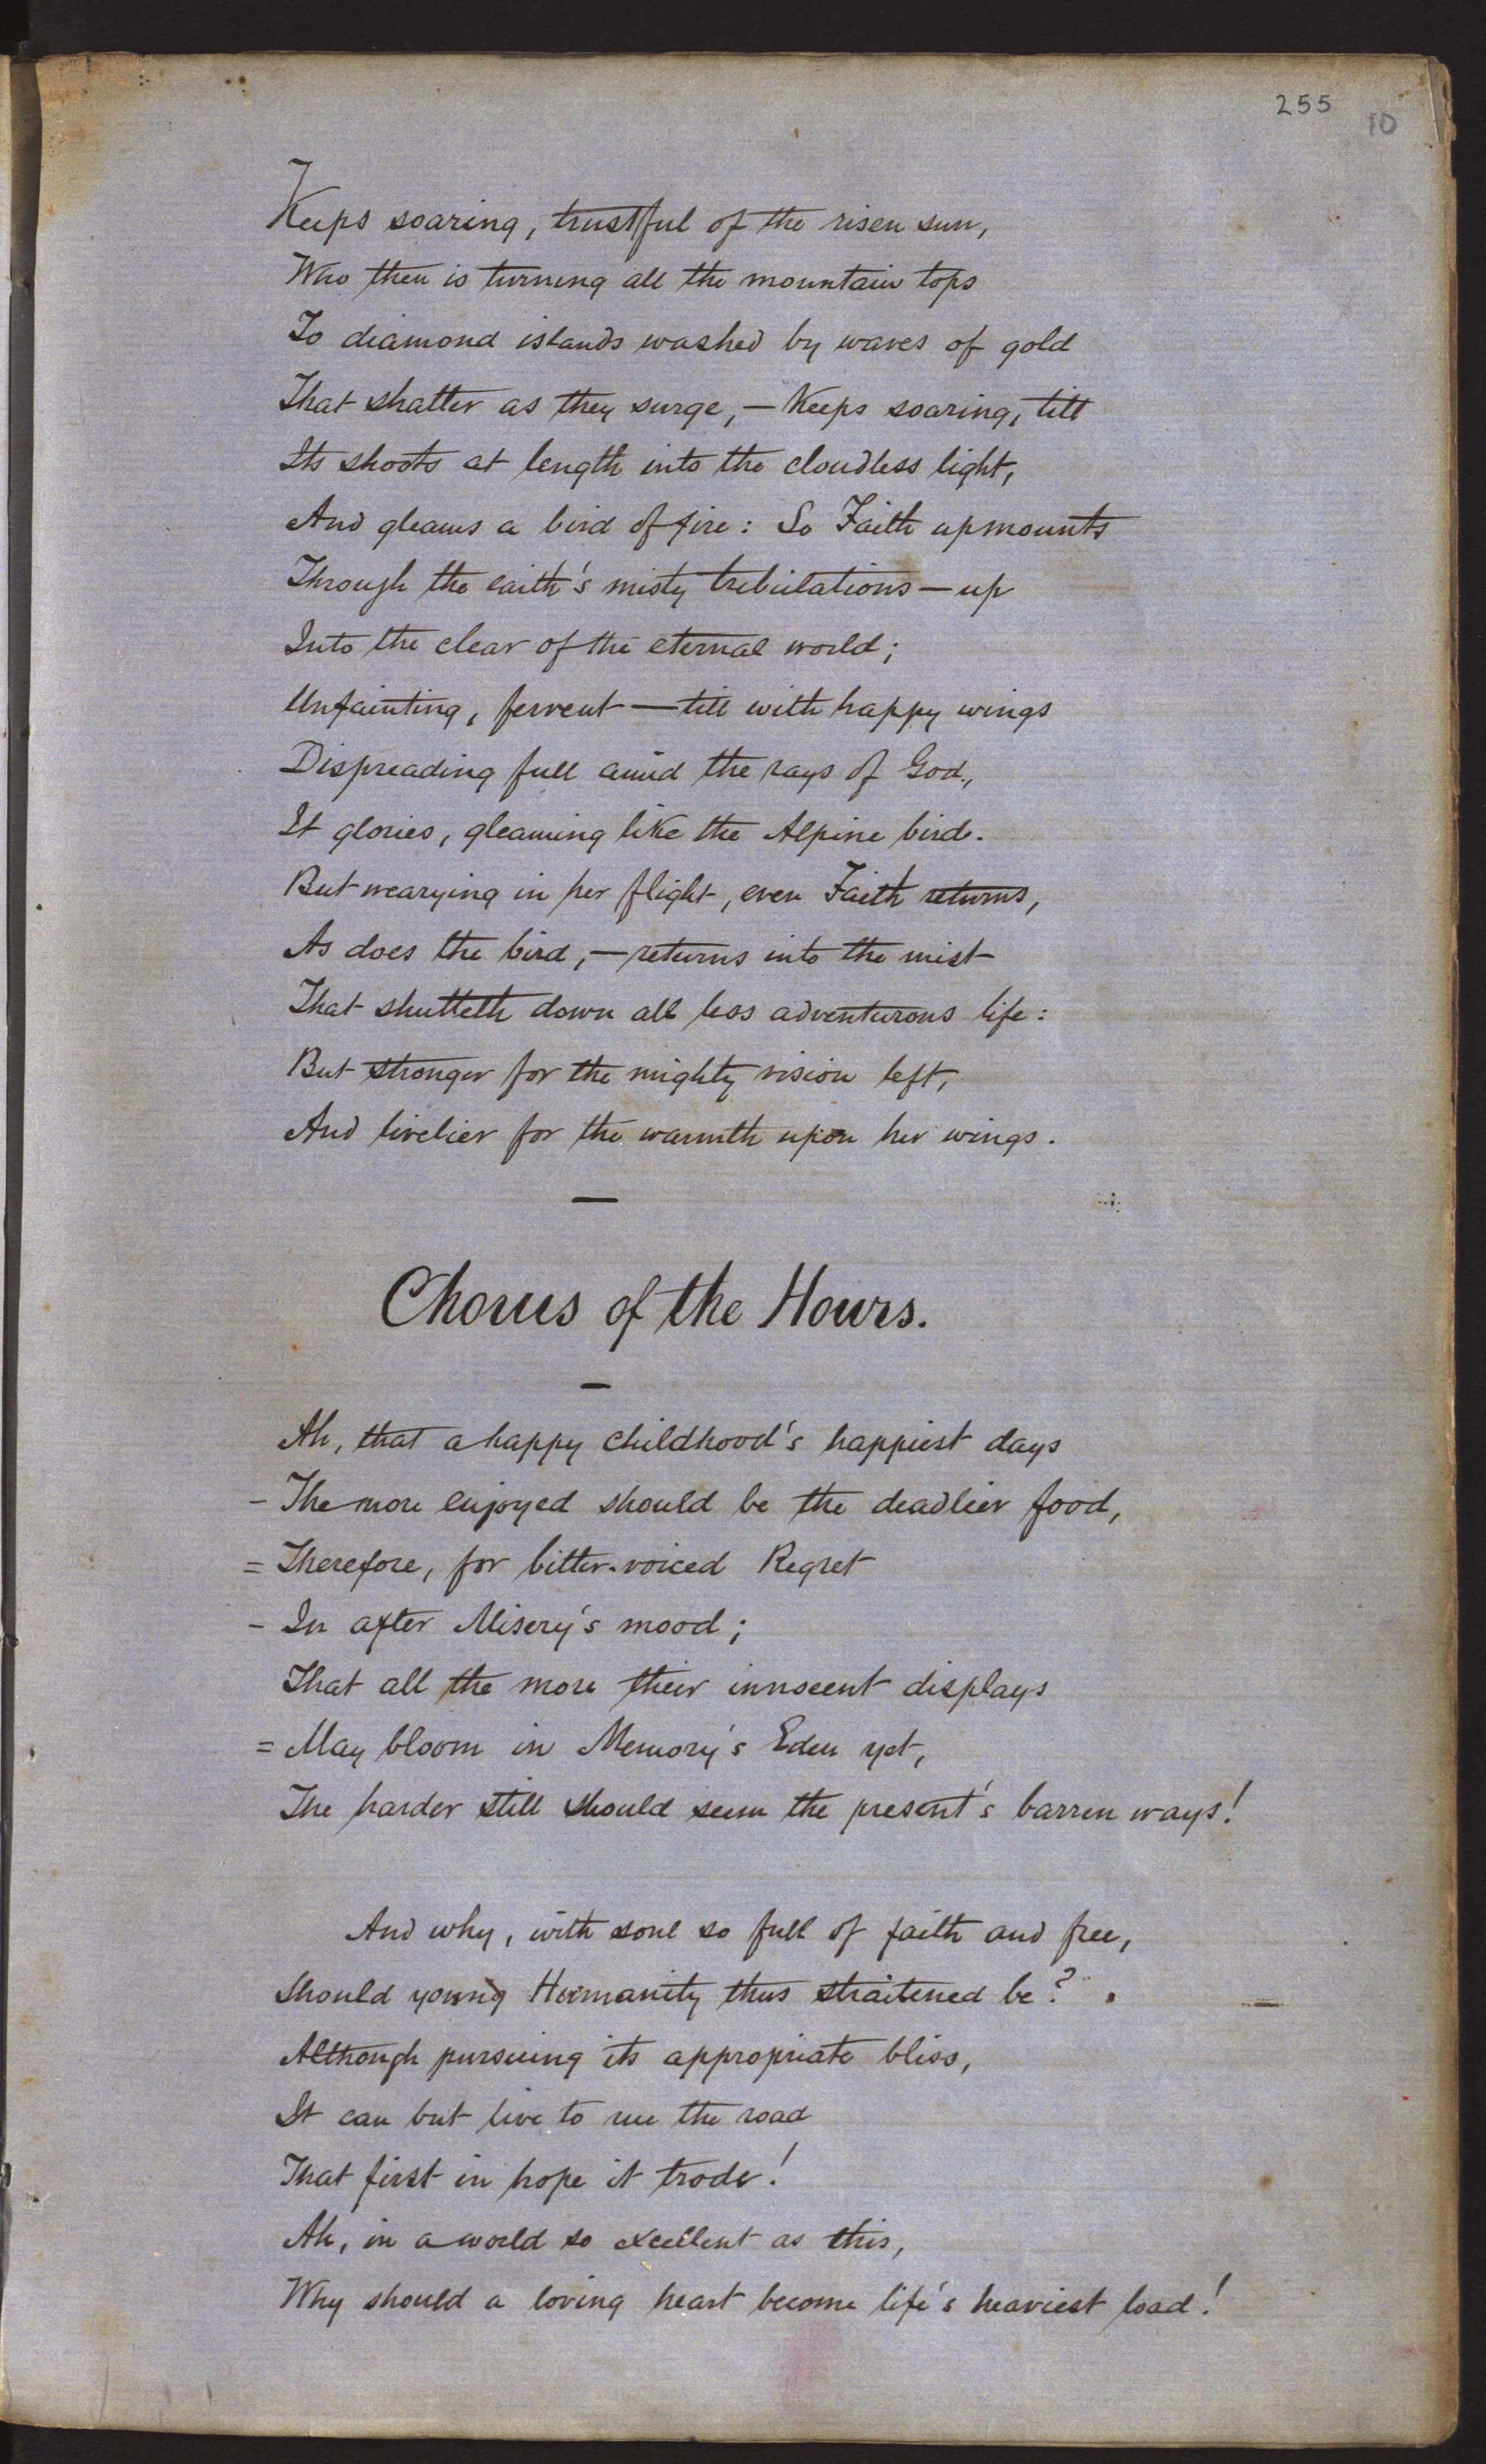 255
10
Keeps soaring, trustful of the risen sun,
Who then is turning all the mountain tops
To diamond islands washed by waves of gold
That shatter as they surge, — Keeps soaring, till
Its shoots at length into the cloudless light,
And gleams a bird of fire: So Faith upmounts
Through the earth's misty tribulations — up
Into the clear of the eternal world;
Unfainting, fervent — till with happy wings
Dispreading full amid the rays of God,
It glories, gleaming like the Alpine bird.
But wearying in her flight, even Faith returns,
As does the bird, — returns into the mist
That shutteth down all less adventurous life:
But stronger for the mighty vision left,
And livelier for the warmth upon her wings.
—
Chorus of the Hours.
—
Ah, that a happy childhood's happiest days
- The more enjoyed should be the deadlier food,
= Therefore, for bitter-voiced Regret
- In after Misery's mood;
That all the more their innocent displays
= May bloom in Memory's Eden yet,
The harder still should seem the present's barren ways!
And why, with soul so full of faith and free,
Should young Humanity thus straitened be?
Although pursuing its appropriate bliss,
It can but live to rue the road
That first in hope it trode!
Ah, in a world so excellent as this,
Why should a loving heart become life's heaviest load!